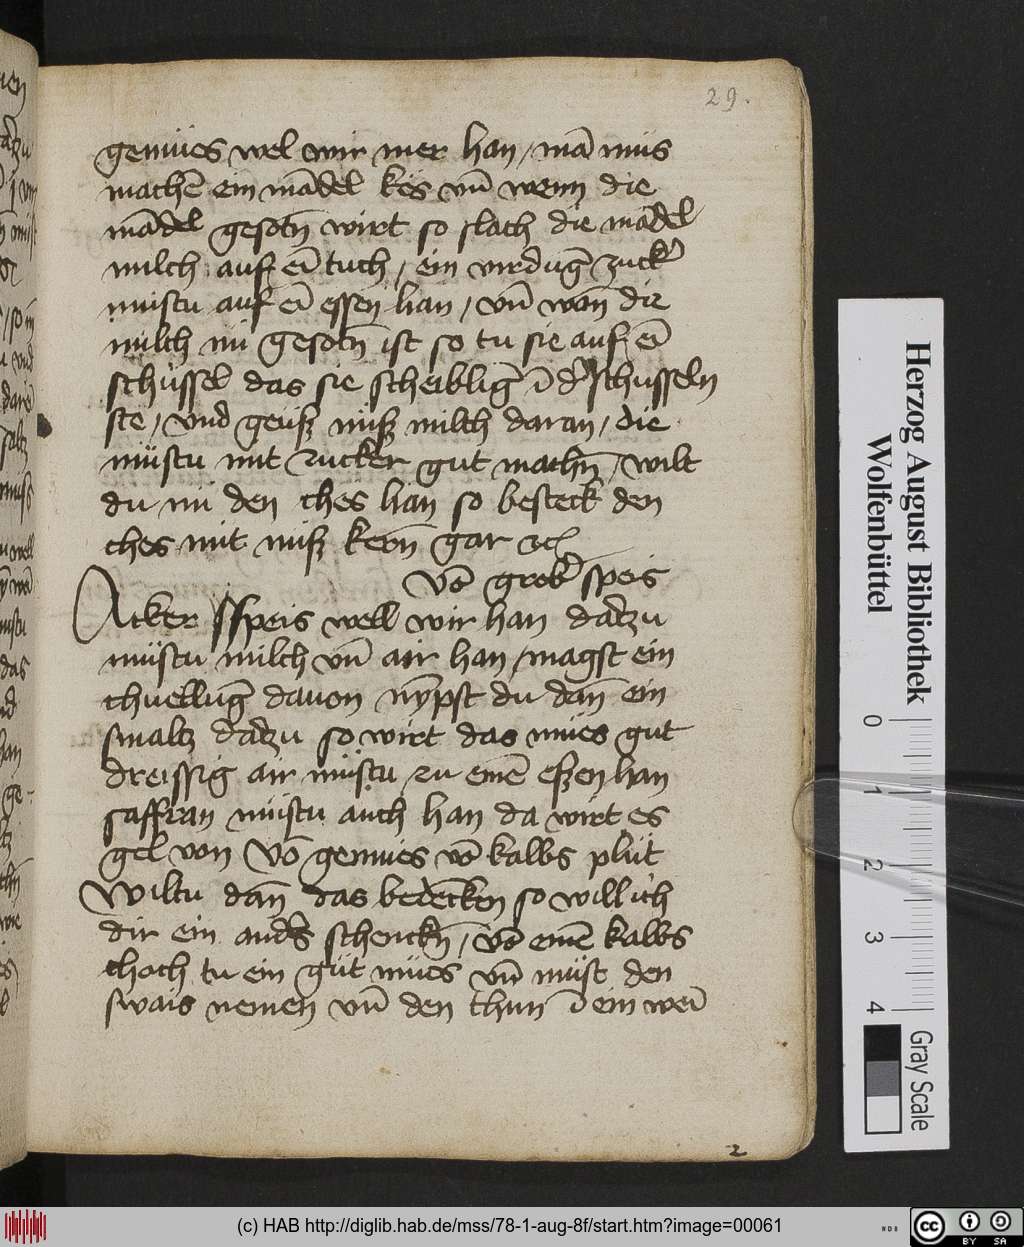 29.
gemües wel wir mer han / mā mus
machē ein mādel kes vn̄ wenn die
mādel gesotn̄ wirt so slach die mādel
milch auf eī tuch / ein virdūg zuck̄
mustu auf eī essen han / vn̄ wan̄ die
milch nu gesotn̄ ist so tu sie auf eī
schüssel das sie scheibliḡ ī d schusseln
ste / vnd geusz nusz milch daran / die
müstu mit zucker gut machn̄ / wilt
du nu den ches han so besteck den
ches mit nusz kern̄ gar
Vō grob speis
Acker speis well wir han datzu
müstu milch vn̄ air han / magst ein
davon nȳpst du dan̄ ein
smaltz datzu so wirt das mües gut
dreissig air müstu zu einē eszen han
saffran müstu auch han da wirt es
gel von Vō gemues vō kalbs plüt
Wiltu dan̄ das bedēcken so will ich
dir ein and's schenckn̄ / vō einē kalbs
choch tu ein güt mües vn̄ müst den
swais nemen vn̄ den thun ī ein weī
2
Herzog August Bibliothek
Wolfenbüttel
0 1 2 3 4
Gray Scale
(c) HAB http://diglib.hab.de/mss/78-1-aug-8f/start.htm?image=00061
WDB
cc BY SA